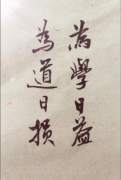 為學日益
為道日损